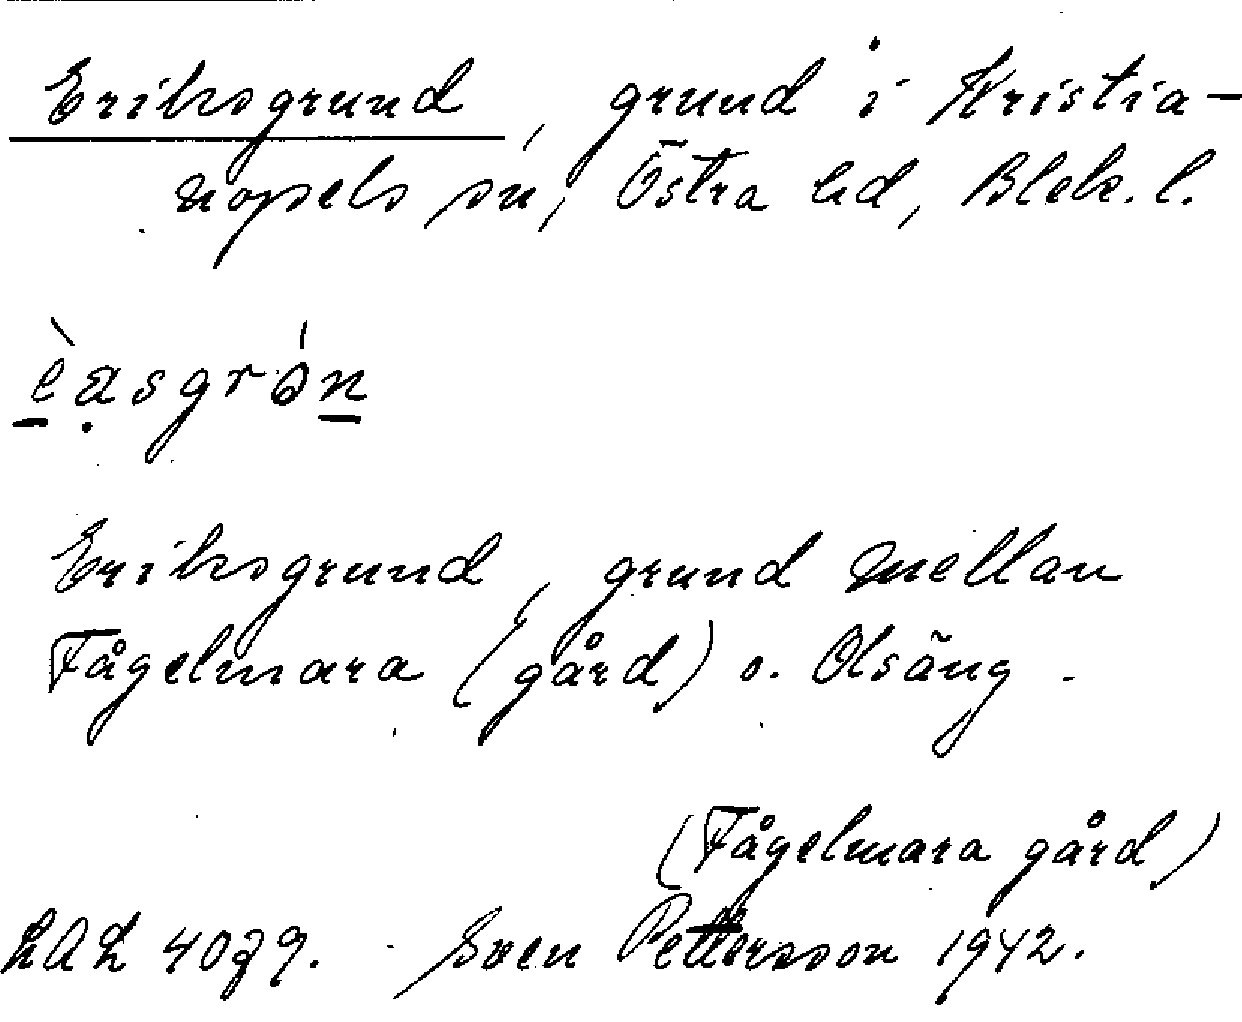 Eriksgrund, grund i Kristia-
nopels sn, Östra hd, Blek. l.
Eriksgrund, grund mellan
Fågelmara (gård) o. Olsäng.
(Fågelmara gård)
LAL 4079. Sven Pettersson 1942.